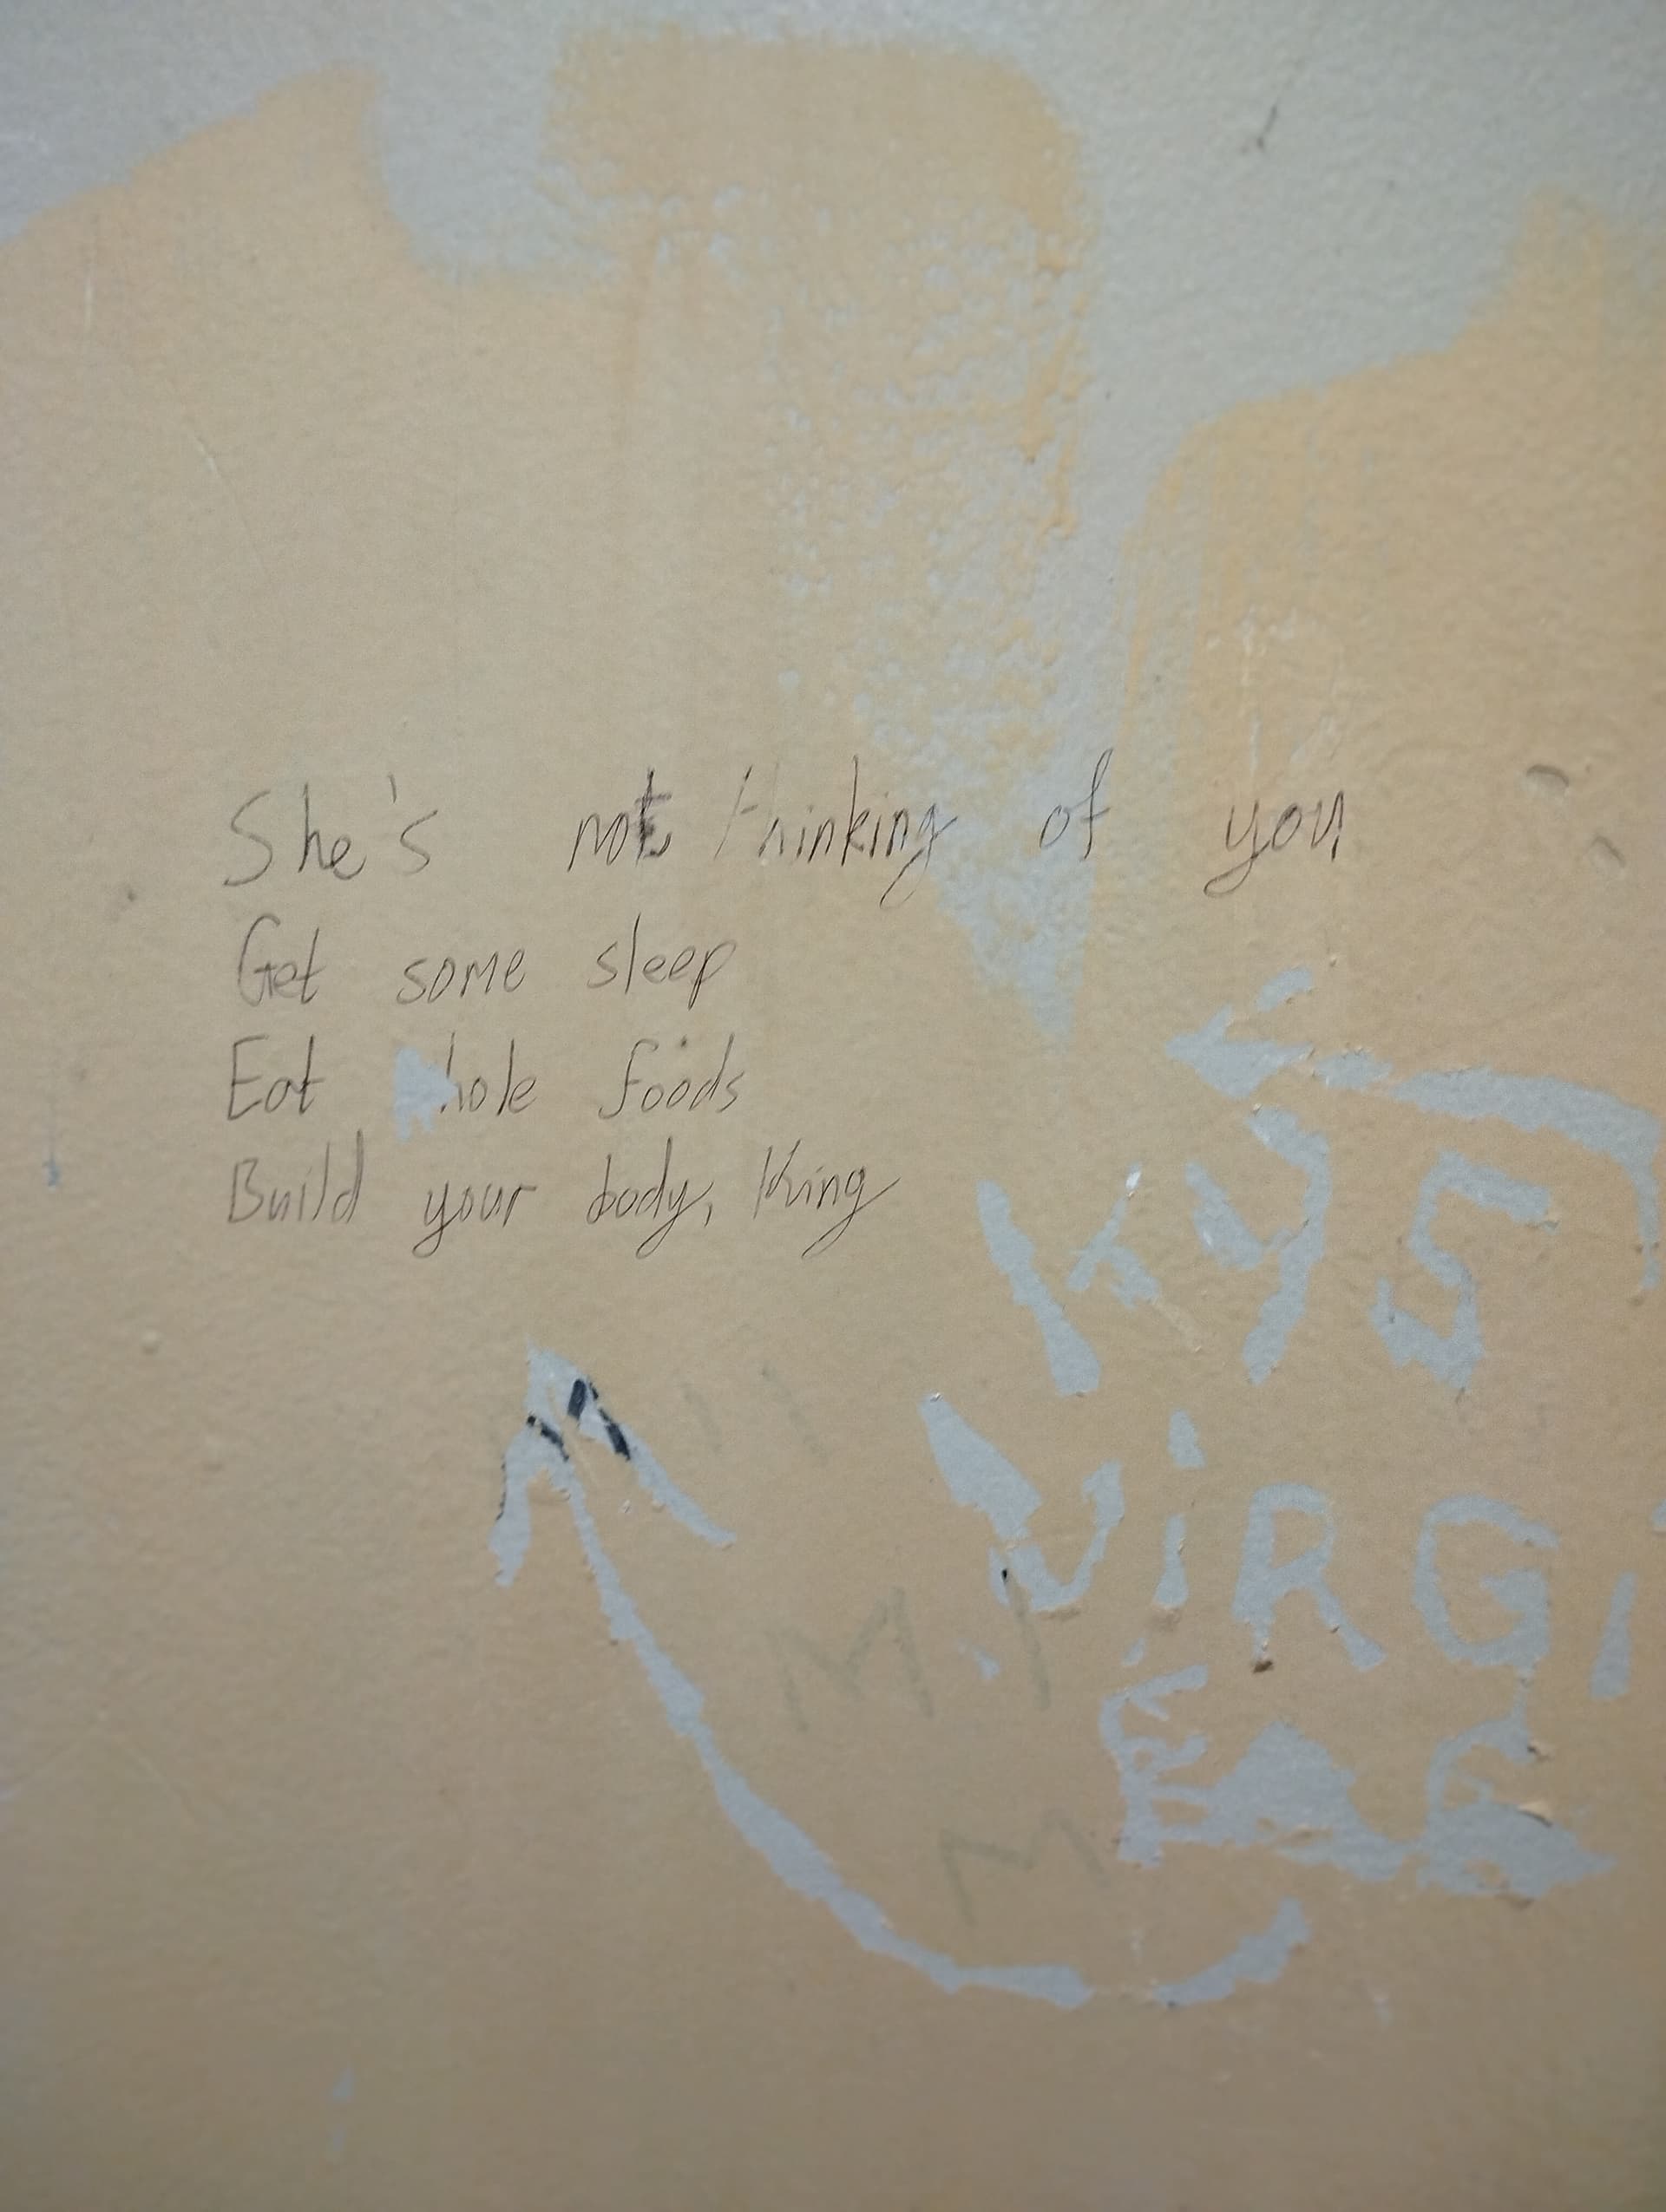 She's not thinking of you
Get some sleep
Eat hole foods
Build your body, King
KYS
ViRGi